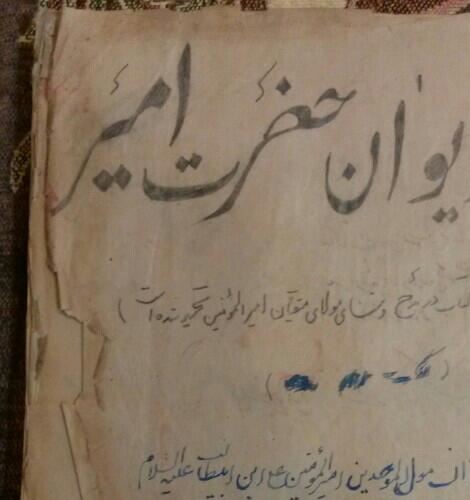 یوان حضرت امیر
در مدح و ثنای مولای متقیان امیرالمؤمنین تحریر شده است )
ان مولی الموحدین امیرالمؤمنین علی ابن ابیطالب علیه السلام